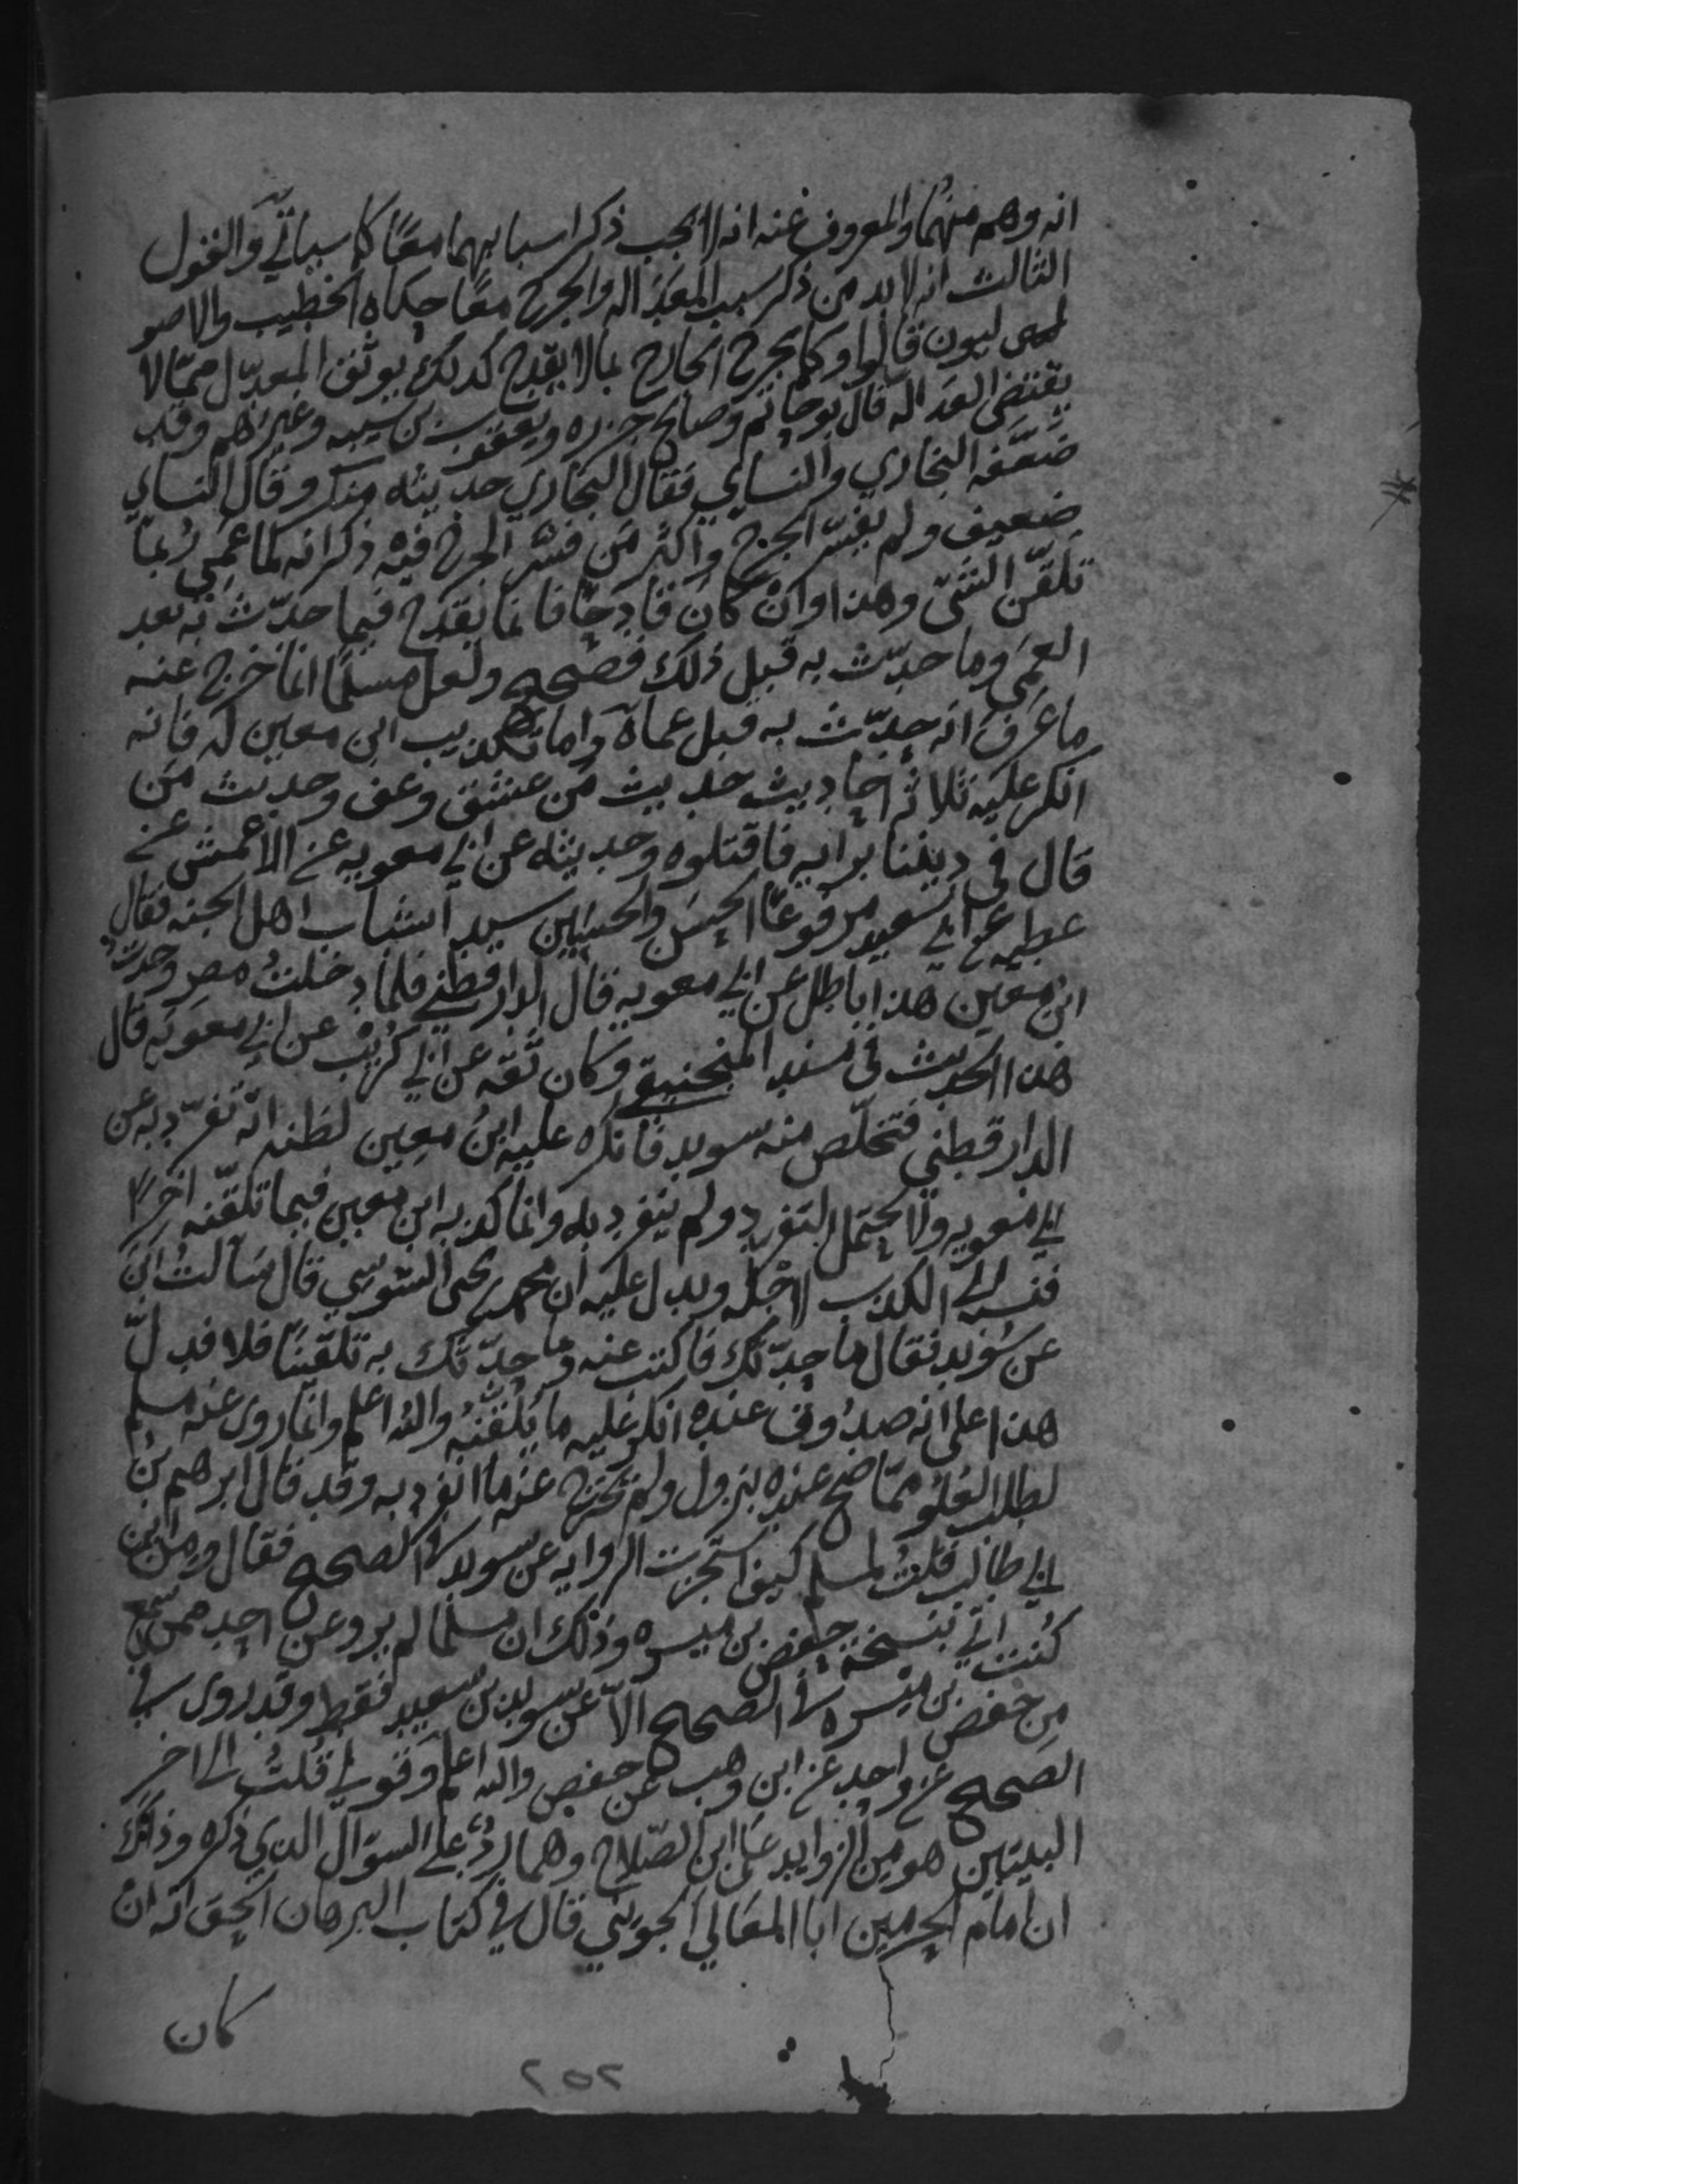 انه وهم منهما والمعروف عنه انه لا يجب ذكر اسبابهما معًا كما سياتي والقول
الثالث انه لا بد من ذكر سبب العداله والجرح معًا حكاه الخطيب والاصو
ليون قالوا وكما يجرح الجارح بما لا يقدح كذلك يوثق المعدّل بما لا
يقتضي العداله قال بوحاتم وصالح جزره ويعقوب بن شيبه وغيرهم وقد
ضعّفه البخاري والنساي فقال البخاري حديثه منكر وقال النساي
ضعيف ولم يفسّر الجرح واكثر من فسّر الجرح فيه ذكر انه لما عمي ربما
تلقّن الشئ وهذا وان كان قادحًا فانما يقدح فيما حدّث به بعد
العمى وما حدّث به قبل ذلك فصحيح ولعل مسلمًا انما خرج عنه
ما عرف انه حدّث به قبل عماه واما تكذيب ابن معين له فانه
انكر عليه ثلاثة احاديث حديث من عشق وعف وحديث من
قال في ديننا برايه فاقتلوه وحديثه عن ابي معويه عن الاعمش عن
عطيه عن ابي سعيد مرفوعًا الحسن والحسين سيدا شباب اهل الجنه فقال
ابن معين هذا باطل عن ابي معويه قال الدارقطني فلما دخلت مصر وجدت
هذا الحديث في مسند المنجنيقي وكان ثقه عن ابي كريب عن ابي معويه قال
الدارقطني فتخلّص منه سويد فانكره عليه ابن معين لظنه انه تفرّد به عن
ابي معويه ولا يحتمل التفرد ولم ينفرد به وانما كذبه ابن معين فيما تلقّنه اخرًا
فنسبه الى الكذب لاجله ويدل عليه ان محمد بن يحيى السوسي قال سالت ابن
عن سويد فقال ما حدّثك فاكتب عنه وما حدّثك به تلقينًا فلا فدلّ
هذا على انه صدوق عنده انكر عليه ما تلقنه والله اعلم وانما روى عنه مسلم
لطلب العلو مما صح عنده بنزول ولم يخرج عنه ما انفرد به وقد قال ابرهيم بن
ابي طالب قلت لمسلم كيف استجزت الروايه عن سويد في الصحيح فقال ومن اين
كنت اتي بنسخة حفص بن ميسره وذلك ان مسلما لم يرو عن احد ممن سمع
من حفص بن ميسره في الصحيح الا عن سويد بن سعيد فقط وقد روى في
الصحيح عن واحد عن ابن وهب عن حفص والله اعلم وقولي قلت الى اخر
البيتين هو من الزوايد على ابن الصّلاح وهما ردّ على السوال الذي ذكره وذلك
ان امام الحرمين ابا المعالي الجويني قال في كتاب البرهان الحق انه ان
كان
٢٥٢